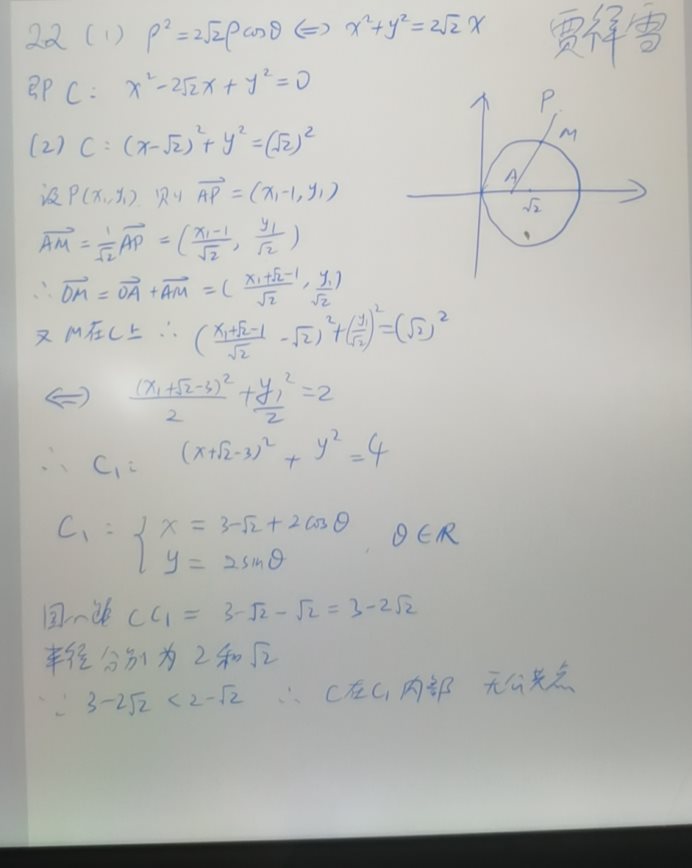 22 (1) ρ²=2√2ρcosθ ⟺ x²+y²=2√2x
贾得雪
即 C: x²-2√2x+y²=0
(2) C: (x-√2)²+y²=(√2)²
设P(x₁,y₁) 则 \overrightarrow{AP}=(x₁-1,y₁)
\overrightarrow{AM}=\frac{1}{√2}\overrightarrow{AP}=(\frac{x₁-1}{√2},\frac{y₁}{√2})
∴ \overrightarrow{OM}=\overrightarrow{OA}+\overrightarrow{AM}=(\frac{x₁+√2-1}{√2},\frac{y₁}{√2})
又 M在C上 ∴ (\frac{x₁+√2-1}{√2}-√2)²+(\frac{y₁}{√2})²=(√2)²
⟺ \frac{(x₁+√2-3)²}{2}+\frac{y₁²}{2}=2
∴ C₁: (x+√2-3)²+y²=4
C₁: { x=3-√2+2cosθ
y=2sinθ , θ∈R
CC₁=3-√2-√2=3-2√2
半径分别为2和√2
∵ 3-2√2<2-√2 ∴ C在C₁内部 无公共点
P
M
A
√2